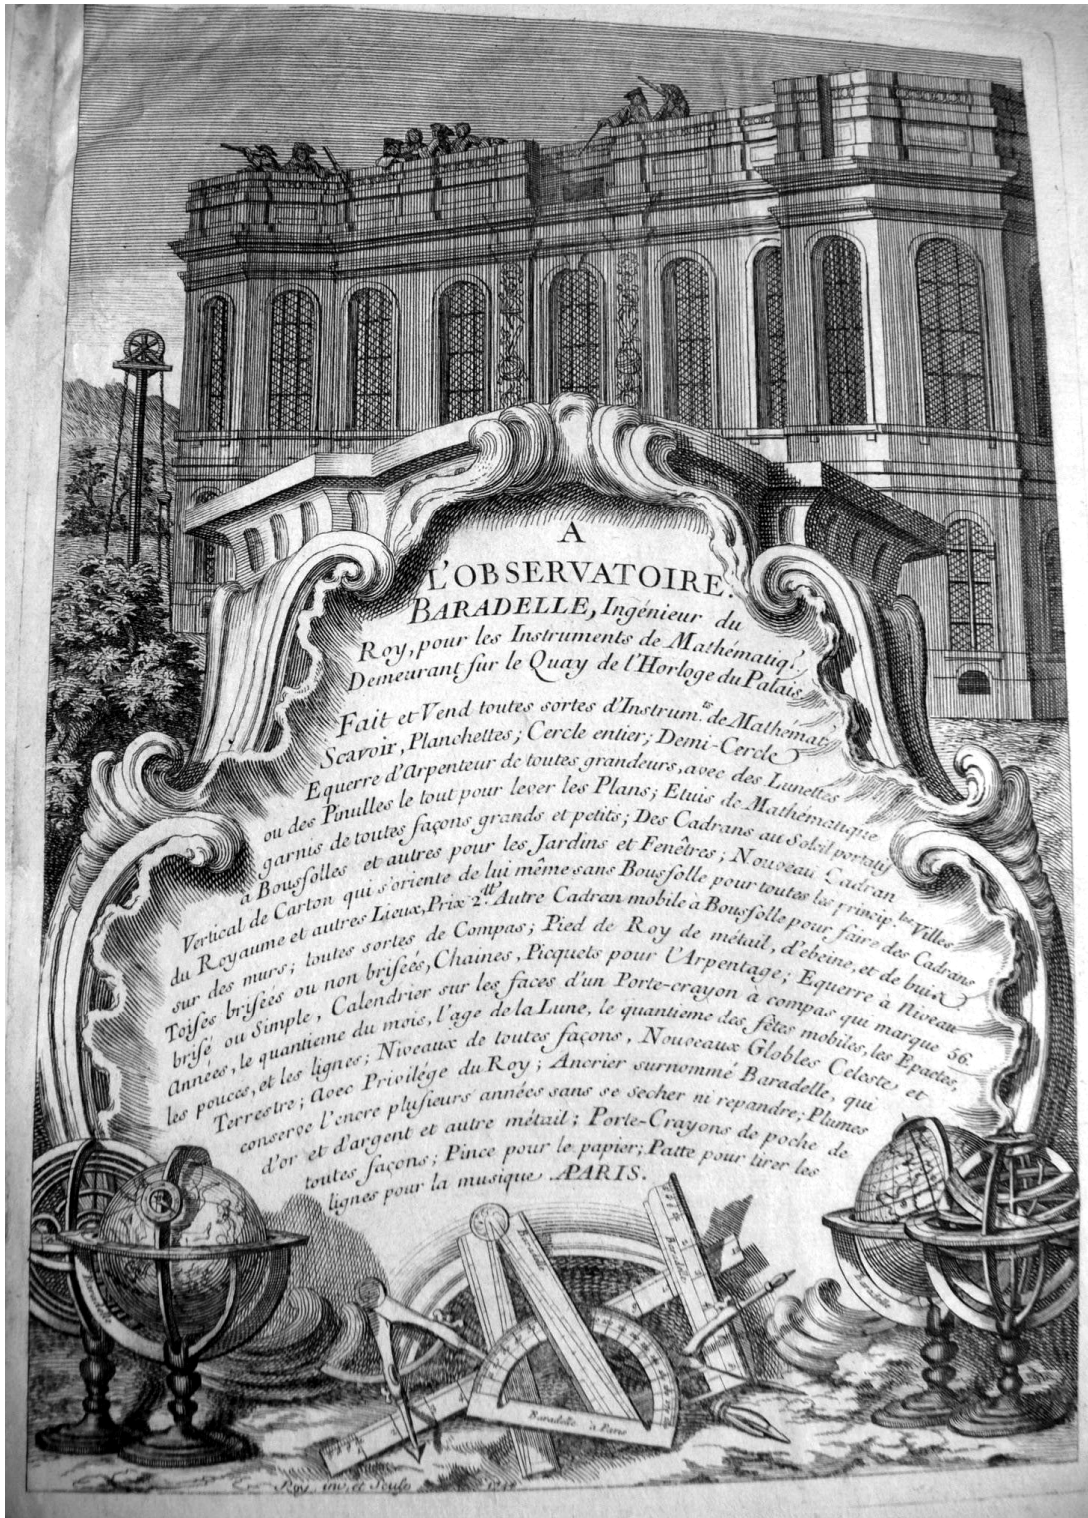 A
L'OBSERVATOIRE.
BARADELLE, Ingénieur du
Roy, pour les Instruments de Mathématiq.^s
Demeurant sur le Quay de l'Horloge du Palais,
Fait et Vend toutes sortes d'Instrum.^ts de Mathémat.^s
Scavoir, Planchettes; Cercle entier; Demi-Cercle
Equerre d'Arpenteur de toutes grandeurs, avec des Lunettes
ou des Pinulles le tout pour lever les Plans; Etuis de Mathématique
garnis de toutes façons grands et petits; Des Cadrans au Soleil portatif
à Boussolles et autres pour les Jardins et Fenêtres; Nouveau Cadran
Vertical de Carton qui s'oriente de lui même sans Boussolle pour toutes les princip.^les Villes
du Royaume et autres Lieux, Prix 2.^tt Autre Cadran mobile à Boussolle pour faire des Cadrans
sur des murs; toutes sortes de Compas; Pied de Roy de métail, d'ebeine, et de buix
Toises brisées ou non brisées, Chaines, Picquets pour l'Arpentage; Equerre à Niveau
brisé ou Simple, Calendrier sur les faces d'un Porte-crayon a compas qui marque 56.
Années, le quantieme du mois, l'age de la Lune, le quantieme des fêtes mobiles, les Epactes,
les pouces, et les lignes; Niveaux de toutes façons, Nouveaux Globles Celeste et
Terrestre; avec Privilége du Roy; Ancrier surnommé Baradelle, qui
conserve l'encre plusieurs années sans se secher ni repandre; Plumes
d'or et d'argent et autre métail; Porte-Crayons de poche de
toutes façons; Pince pour le papier; Patte pour tirer les
lignes pour la musique. APARIS.
Baradelle
Baradelle
Baradelle
Baradelle
Baradelle à Paris
Roy inv. et Sculp